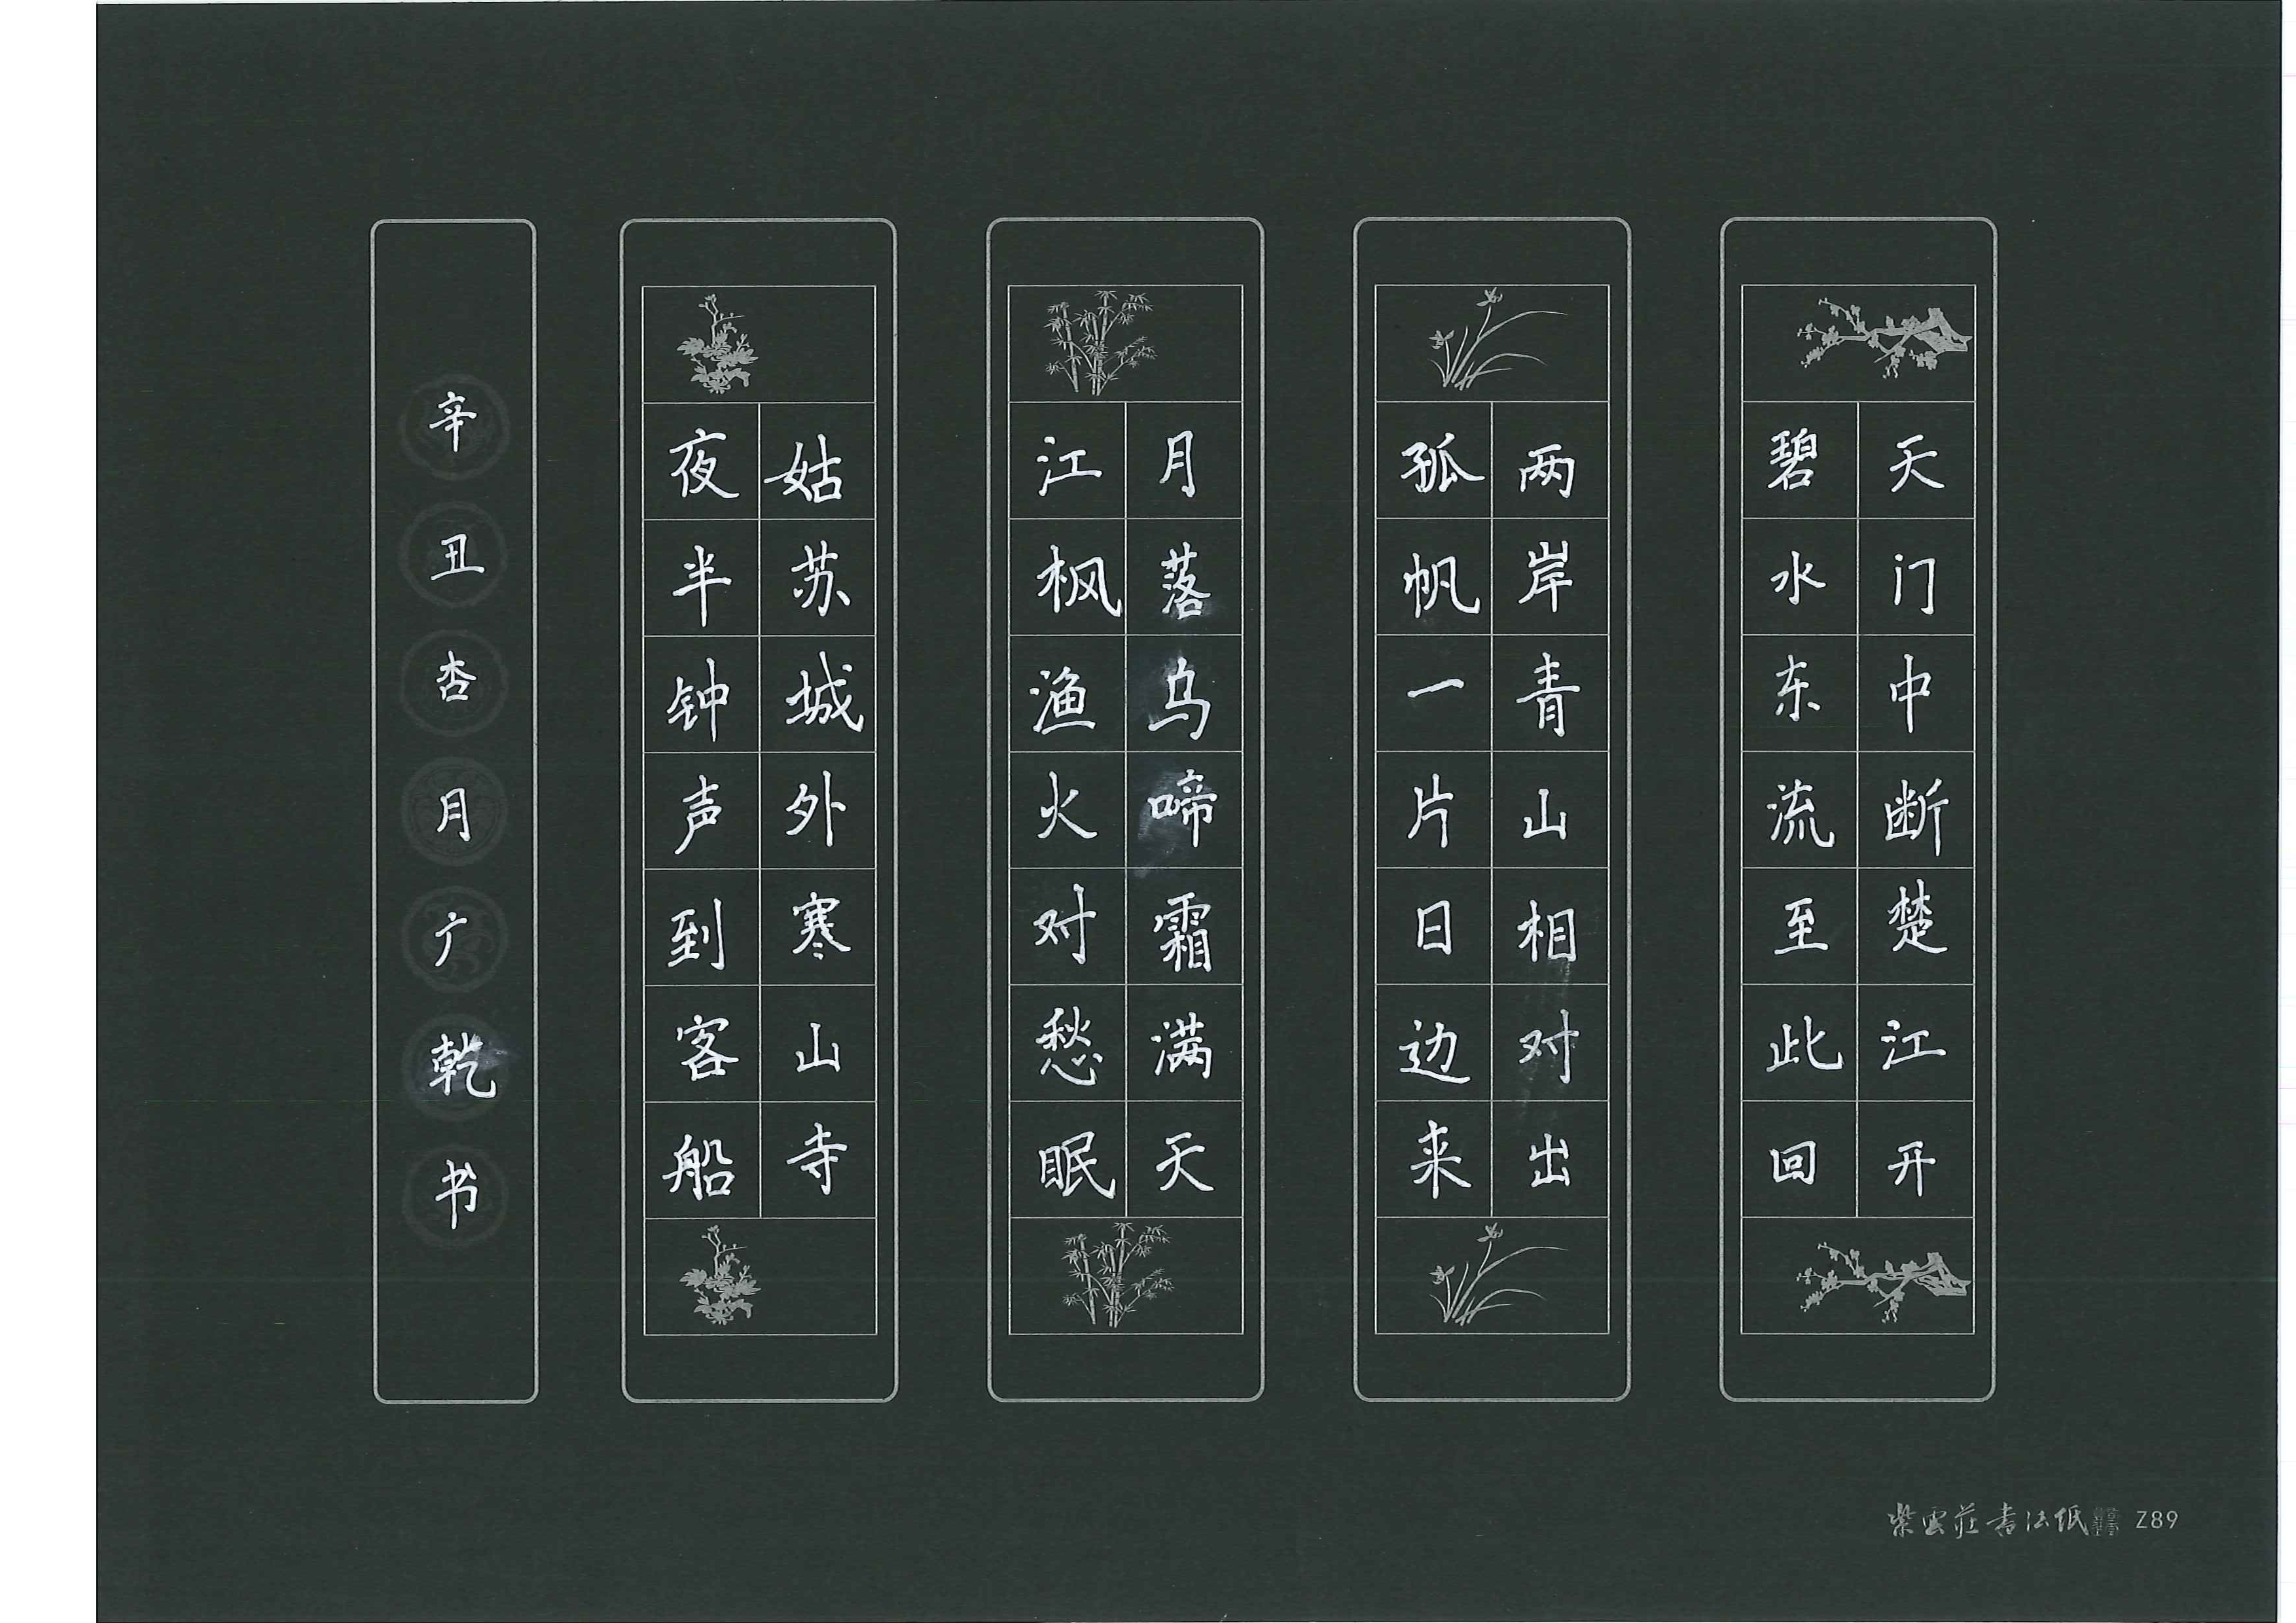 天门中断楚江开
碧水东流至此回
两岸青山相对出
孤帆一片日边来
月落乌啼霜满天
江枫渔火对愁眠
姑苏城外寒山寺
夜半钟声到客船
辛丑杏月广乾书
紫雲莊書法纸 Z89